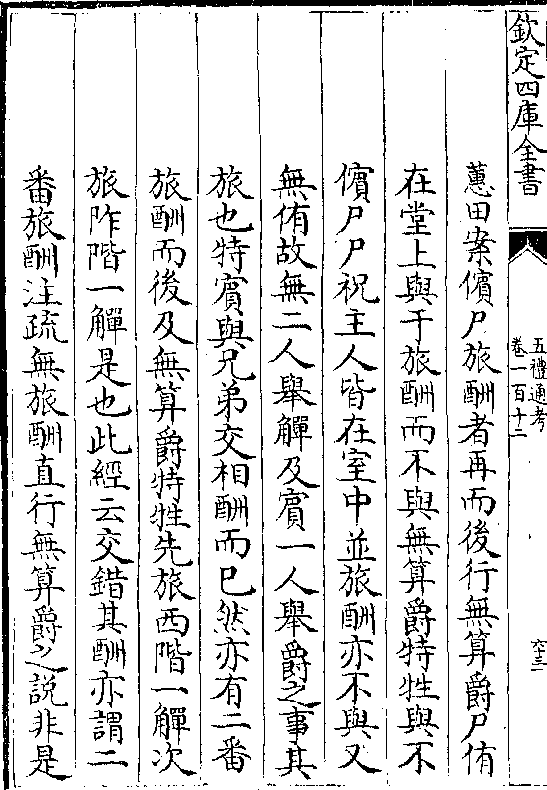 欽定四庫全書
五禮通考
卷一百十二
六十三
蕙田案儐尸旅酬者再而後行無算爵尸侑
在堂上與于旅酬而不與無算爵特牲與不
儐尸尸祝主人皆在室中並旅酬亦不與又
無侑故無二人舉觶及賓一人舉爵之事其
旅也特賓與兄弟交相酬而已然亦有二番
旅酬而後及無算爵特牲先旅西階一觶次
旅阼階一觶是也此經云交錯其酬亦謂二
番旅酬注疏無旅酬直行無算爵之說非是